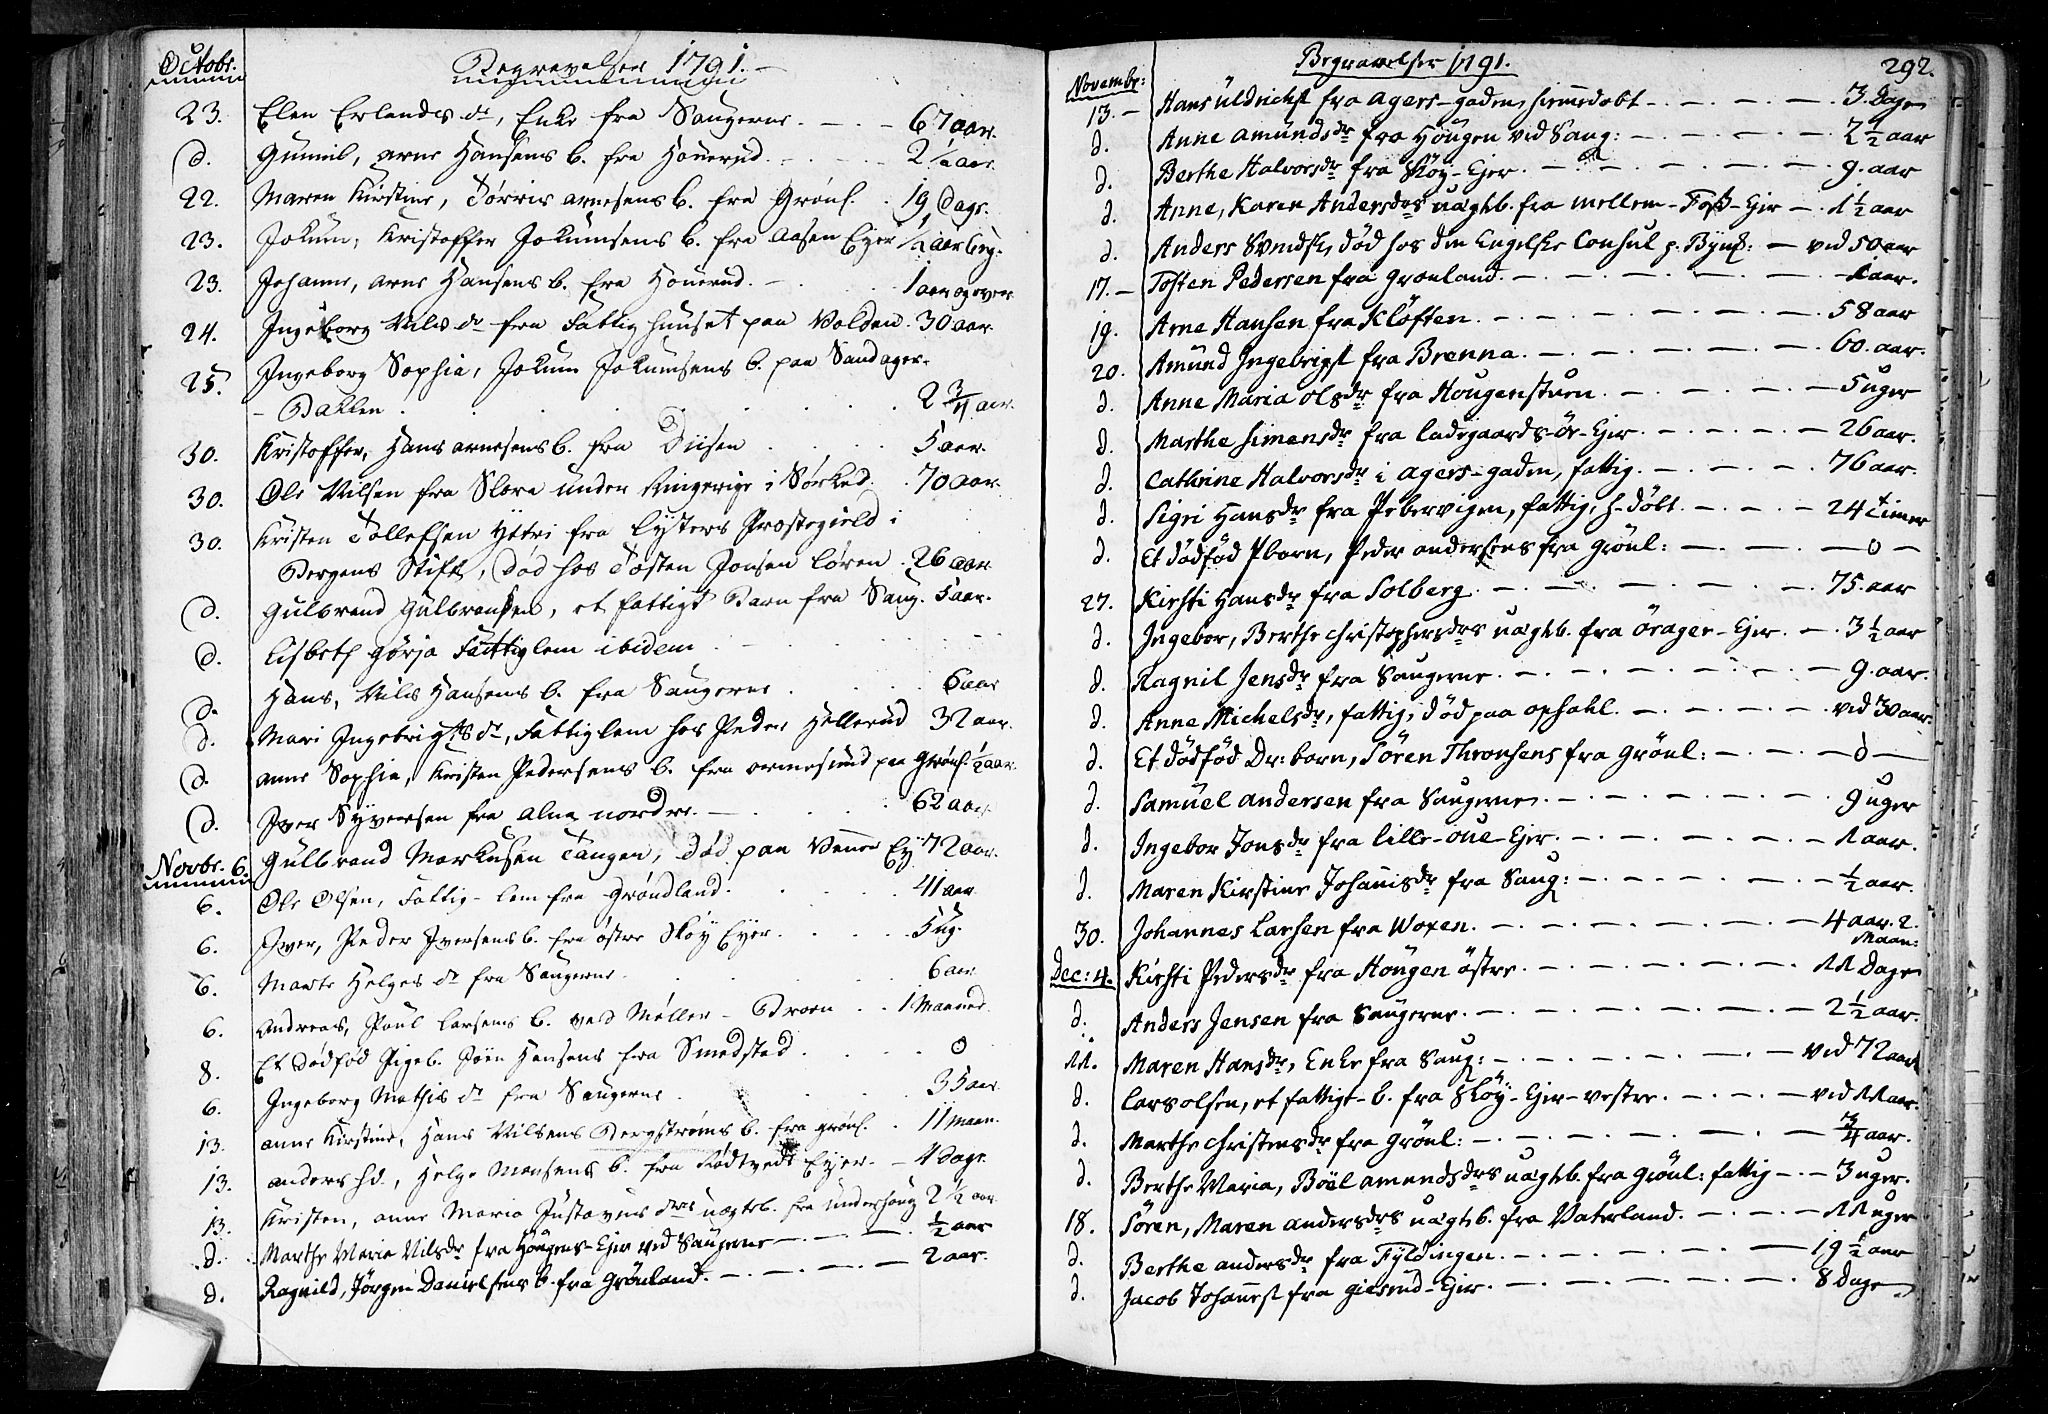 Octobr.
Begravelser 1791.
23. Elen Erlands dr, Enke fra Saugerne. 67 aar.
d. Gunnil, Arne Hansens b. fra Houerud. 2 1/2 aar.
22. Maren Kirstine, Törris Arnesens b. fra Grönl. 19 Dage.
23. Jokum, Kristoffer Jokumsens b. fra Aasen Eyer 1/2 aar
23. Johanne, Arne Hansens b. fra Houerud. 1 aar og over
24. Ingeborg Nils dr fra Fattighuuset paa Volden. 30 aar.
25. Ingeborg Sophia, Jokum Jokumsens b. paa Sandager-
-Bakken. 2 3/4 aar.
30. Kristoffer, Hans Arnesens b. fra Diisen 5 aar.
30. Ole Nilsen fra Slora under Ringerige i Sørked. 70 aar.
30. Kristen Tollefsen Yttri fra Lysters Prostegield i
Bergens Stift, Död hos Tosten Jonsen Lören. 26 aar.
d. Gulbrand Gulbransen, et fattigt Barn fra Saug. 5 aar.
d. Lisbeth Görja Fattiglem ibidem
d. Hans, Nils Hansens b. fra Saugerne 6 aar
d. Mari Ingebrigts dr, Fattiglem hos Peder Hellerud 32 aar.
d. Anne Sophia, Kristen Pedersens b. fra Ormesund paa Grönl. 1/2 aar.
d. Iver Syversen fra Alna nordre. 62 aar.
Novbr. 6. Gulbrand Markusen Tangen, död paa Ey 72 aar.
6. Ole Olsen, Fattig-lem fra Gröndland. 41 aar
6. Iver, Peder Iversens b. fra östre Sköy Eyer. 5 ug.
6. Marte Helges dr fra Saugerne 6 aar
6. Andreas, Poul Larsens b. ved Möller- 1 Maaned.
8. Et Dödfød Pigeb. Hansens fra Smedstad. 0
6. Ingeborg Mathis dr fra Saugerne 35 aar.
13. Anne Kirstine, Hans Nilsens Bergströms b. fra Grönl. 11 Maan.
13. Anders hd., Helge Monsens b. fra Rödtvedt Eyer. 4 Dage.
13. Kristen, Anne Maria Justavus drs uægteb. fra Underhaug 2 1/2 aar
d. Marthe Maria Nilsdr fra Hougens-Ejer ved Saugerne 1/2 aar
d. Ragnild, Jörgen Danielsens b. fra Grönland. 2 aar.
Begravelser 1791.
292.
Novembr:
13. Hans Uldrichs. fra Agers-gaden, hiemmedöbt 3. Dage
d. Anne Amundsdr fra Höugen ved Saug: 2 1/2 aar
d. Berthe Halvorsdr fra Sköy-Ejer. 9. aar
d. Anne, Karen Andersdrs uægtb. fra Mellem-Foss-Ejer 1 1/2 aar
d. Anders Svendsk, död hos den Engelske Consul p. Bÿnd: ved 50 aar
17. Tosten Pedersen fra Grönland. 1 aar.
19. Arne Hansen fra Klöften. 58 aar
20. Amund Ingebrigs. fra Brenna. 60. aar.
d. Anne Maria Olsdr fra Hougenstuen. 5 uger
d. Marthe Simensdr fra Ladegaards-öe-Ejer. 26 aar.
d. Cathrine Halvorsdr i Agers-gaden, fattig. 76 aar.
d. Sigri Hansdr fra Pebervigen, fattig, h-döbt. 24 timer
d. Et dödföd P:barn, Peder Andersens fra Grönl: 0
27. Kirsti Hansdr fra Solberg. 75. aar
d. Ingebor, Berthe Christophersdrs uægtb. fra Örager-Ejer. 3 1/2 aar
d. Ragnil Jensdr fra Saugerne. 9. aar.
d. Anne Michelsdr, fattig, död paa ophold. ved 30 aar.
d. Et dödföd Dr: barn, Sören Thronsens fra Grönl: 0
d. Samuel Andersen fra Saugerne. 9 uger
d. Ingebor Jonsdr fra Lille-oue-Ejer. 1 aar.
d. Maren Kirstine Johannisdr fra Saug: 1/2 aar.
30. Johannes Larsen fra Woxen. 4 aar. 2.
Maan:
Dec: 4. Kirsti Pedersdr fra Höugen östre. 11 Dage
d. Anders Jensen fra Saugerne. 2 1/2 aar.
11. Maren Hansdr, Enke fra Saug: ved 72 aar
d. Lars Olsen, et fattigt-b. fra Sköy-Ejer-vestre. ved 11 aar.
d. Marthe Christensdr fra Grönl: 3/4 aar.
d. Berthe Maria, Böel Amundsdrs uægtb. fra Grönl: fattig 3 uger.
18. Sören, Maren Andersdrs uægtb. fra Vaterland. 11 uger
d. Berthe Andersdr fra Fyldingen. 19 1/2 aar
d. Jacob Johannes. fra Ejer. 8 Dage